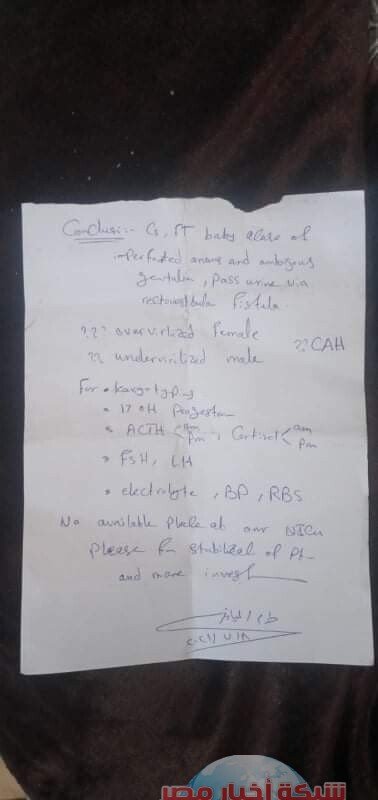 Conclusi:- Cs, PT baby ♂ case of
imperforated anus and ambigous
genitalia, pass urine via
fistula
??? over virilized female
?? undervirilized male
?? CAH
For • karyotyping
• 17 OH Progesteron
• ACTH am pm, Cortisol am pm
• FSH, LH
• electrolyte, BP, RBS
No available place at our NICU
Please for of Pt
and more invest
شبكة أخبار مصر